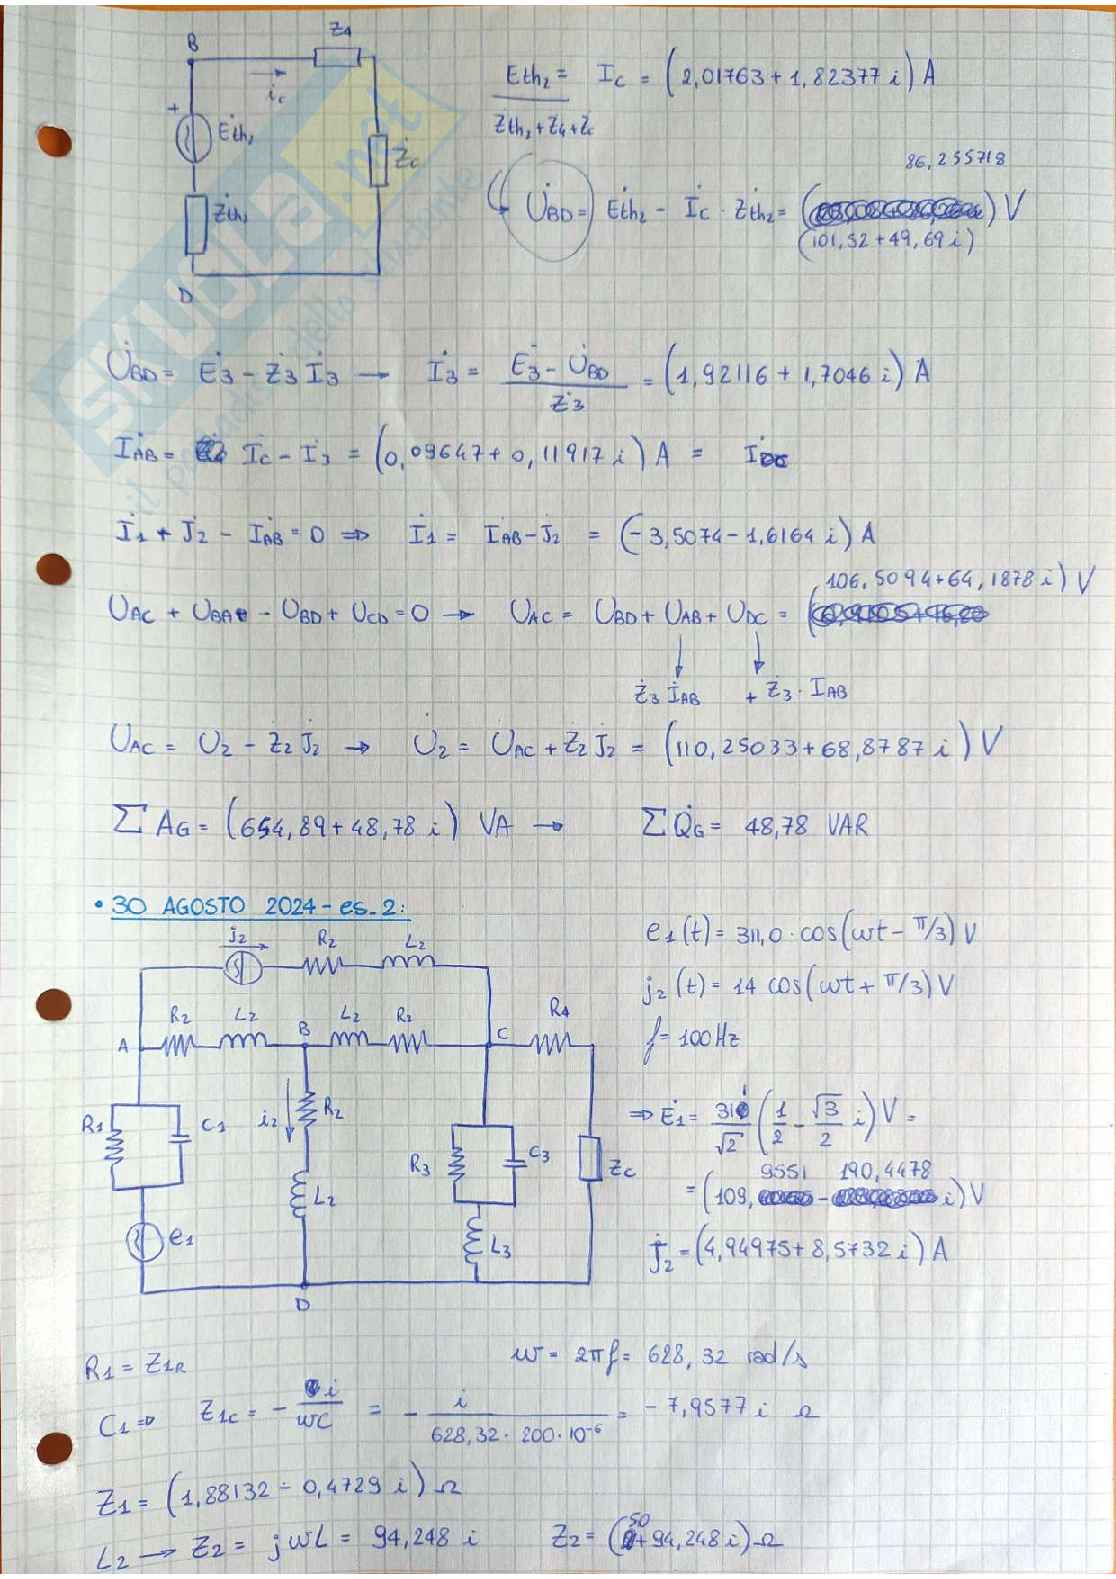 B
Z4
ic
+
Ėth2
Żth2
Żc
D
Eth2 / (Zth2+Z4+Zc) = Ic = (2,01763+1,82377 i) A
86,255718
U̇BD = Ėth2 - İc · Żth2 = ( ) V
(101,52+49,69 i)
U̇BD = Ė3 - Ż3 İ3 → İ3 = (Ė3 - U̇BD) / Ż3 = (1,92116 + 1,7046 i) A
İAB = Ic - I3 = (0,09647+0,11917 i) A = İDC
İ1 + J̇2 - İAB = 0 ⇒ İ1 = İAB - J̇2 = (-3,5074-1,6164 i) A
106,5094+64,1878 i) V
UAC + UBA - UBD + UCD = 0 → UAC = UBD + UAB + UDC = (
Ż3 İAB + Ż3 · IAB
UAC = U2 - Ż2 J̇2 → U̇2 = UAC + Ż2 J̇2 = (110,25033+68,8787 i) V
Σ AG = (654,89+48,78 i) VA → Σ Q̇G = 48,78 VAR
• 30 AGOSTO 2024 - es. 2:
j2 R2 L2
R2 L2 B L2 R2 C R4
A
R1 C1 i2 R2
R3 C3 Zc
L2
e1 L3
D
e1(t) = 311,0 · cos(ωt - π/3) V
j2(t) = 14 cos(ωt + π/3) V
f = 100 Hz
⇒ Ė1 = 311/√2 (1/2 - √3/2 i) V =
9551 190,4478
= (109, - i) V
J̇2 = (4,94975+8,5732 i) A
R1 = Z1R
ω = 2πf = 628,32 rad/s
C1 ⇒ Z1C = - i/ωC = - i/(628,32 · 200 · 10⁻⁶) = -7,9577 i Ω
Z1 = (1,88132 - 0,4729 i) Ω
L2 → Z2 = jωL = 94,248 i Z2 = (50+94,248 i) Ω
SKUOLA.net